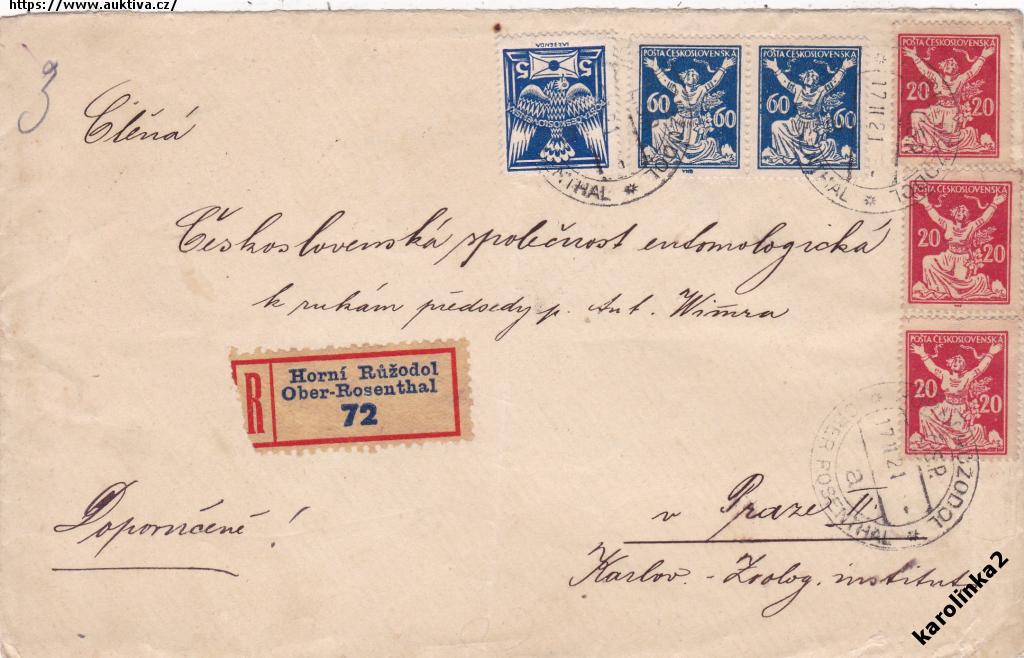 https://www.auktiva.cz/
3
5 5
60 60
60 60
POŠTA ČESKOSLOVENSKÁ
20 20
17 II 21
Ctěná
POŠTA ČESKOSLOVENSKÁ
20 20
Československá společnost entomologická
k rukám předsedy p. Ant. Wimra
POŠTA ČESKOSLOVENSKÁ
20 20
R
Horní Růžodol
Ober-Rosenthal
72
17 II 21
OBER ROSENTHAL
a
Doporučeně!
v Praze II.
Karlov. - Zoolog. institut
karolinka2